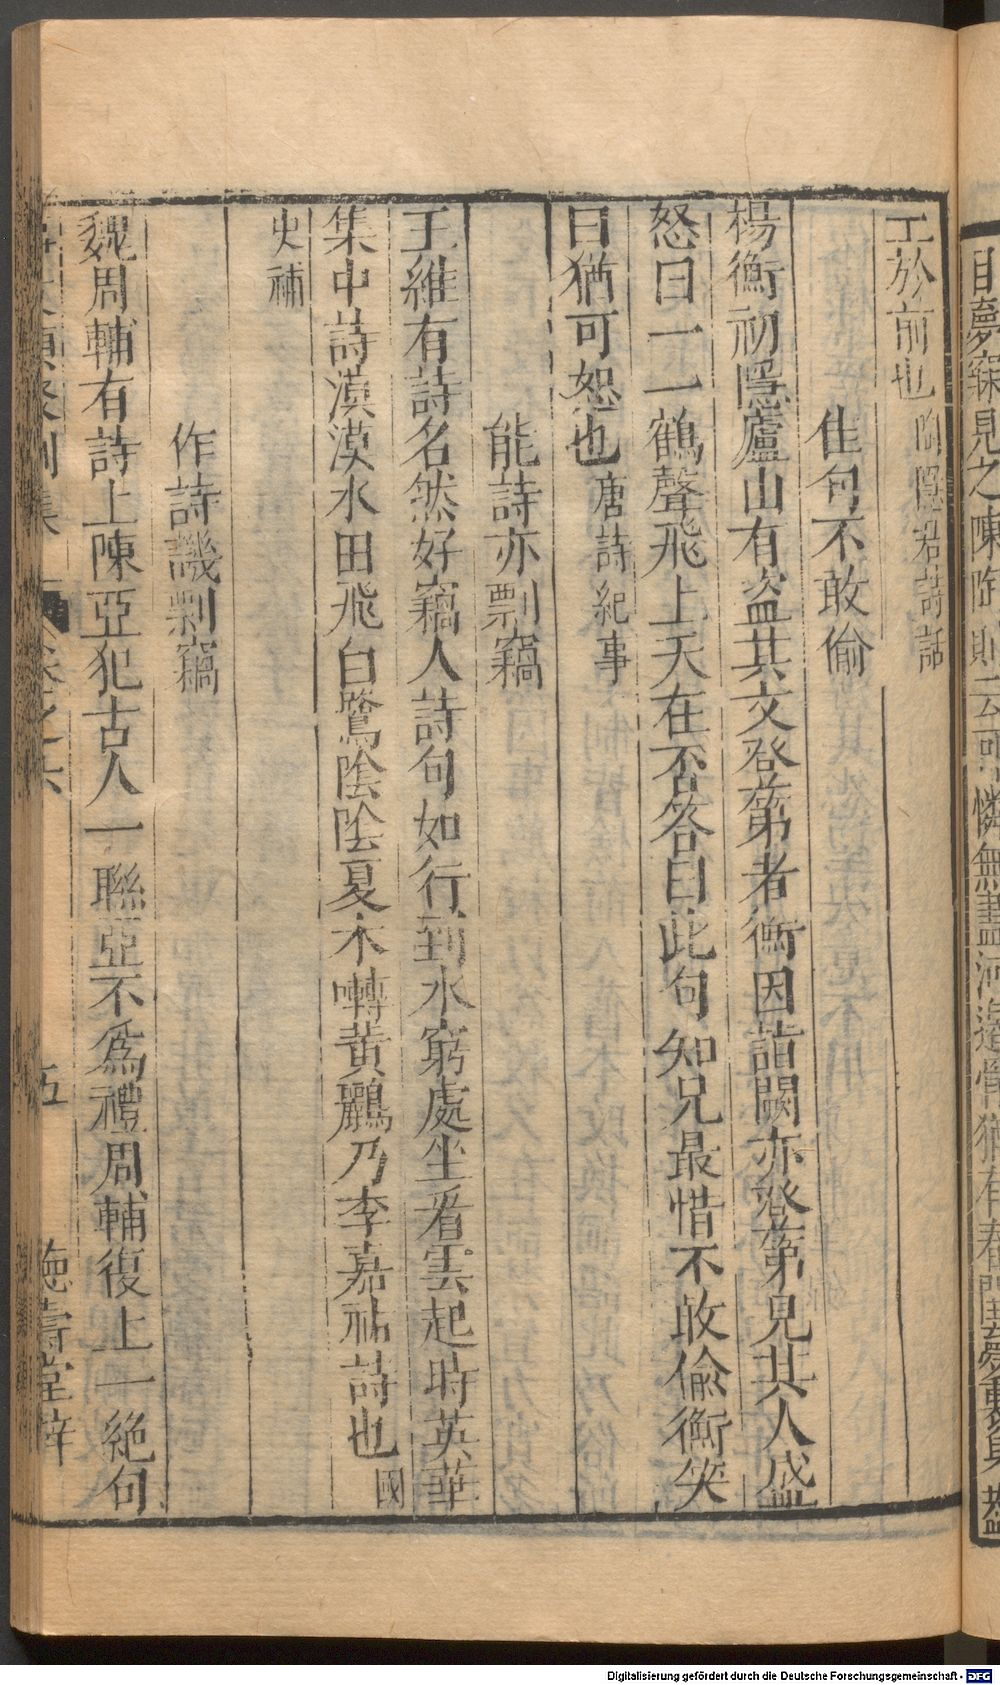 工於前也陶隱居詩話
佳句不敢偷
楊衡初隱廬山有盗其文登第者衡因詣闕亦登第見其人盛
怒曰一一鶴聲飛上天在否答曰此句知兄最惜不敢偷衡笑
曰猶可恕也唐詩紀事
能詩亦剽竊
王維有詩名然好竊人詩句如行到水窮處坐看雲起時英華
集中詩漠漠水田飛白鷺陰陰夏木囀黄鸝乃李嘉祐詩也國
史補
作詩譏剽竊
魏周輔有詩上陳亞犯古人一聯亞不爲禮周輔復上一絶句
集 卷之六 五 德壽堂梓
目夢寐見之陳陶則云可憐無盡河邊骨猶有春閨夢裏人
Digitalisierung gefördert durch die Deutsche Forschungsgemeinschaft - DFG